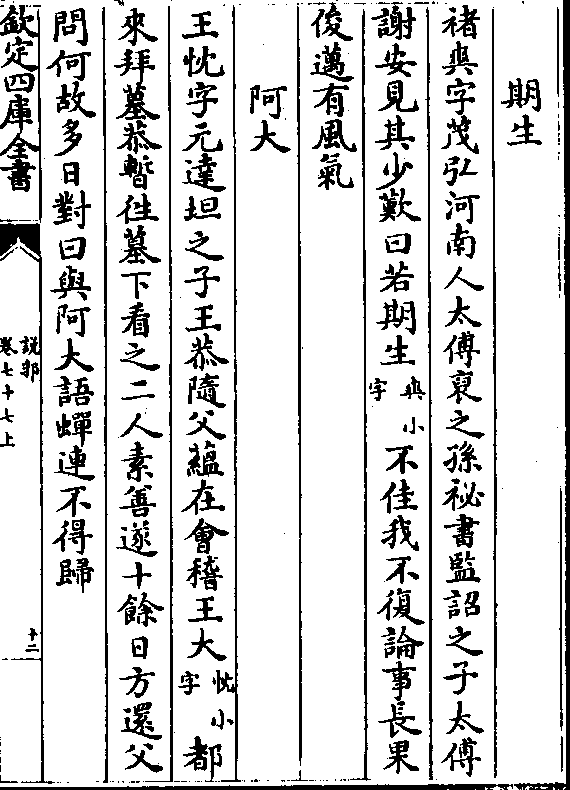 期生
褚爽字茂弘河南人太傅裒之孫祕書監詔之子太傅
謝安見其少歎曰若期生爽小字不佳我不復論事長果
俊邁有風氣
阿大
王忱字元達坦之子王恭隨父蘊在會稽王大忱小字都
來拜墓恭暫徃墓下看之二人素善遂十餘日方還父
問何故多日對曰與阿大語蟬連不得歸
欽定四庫全書
說郛
卷七十七上
十二